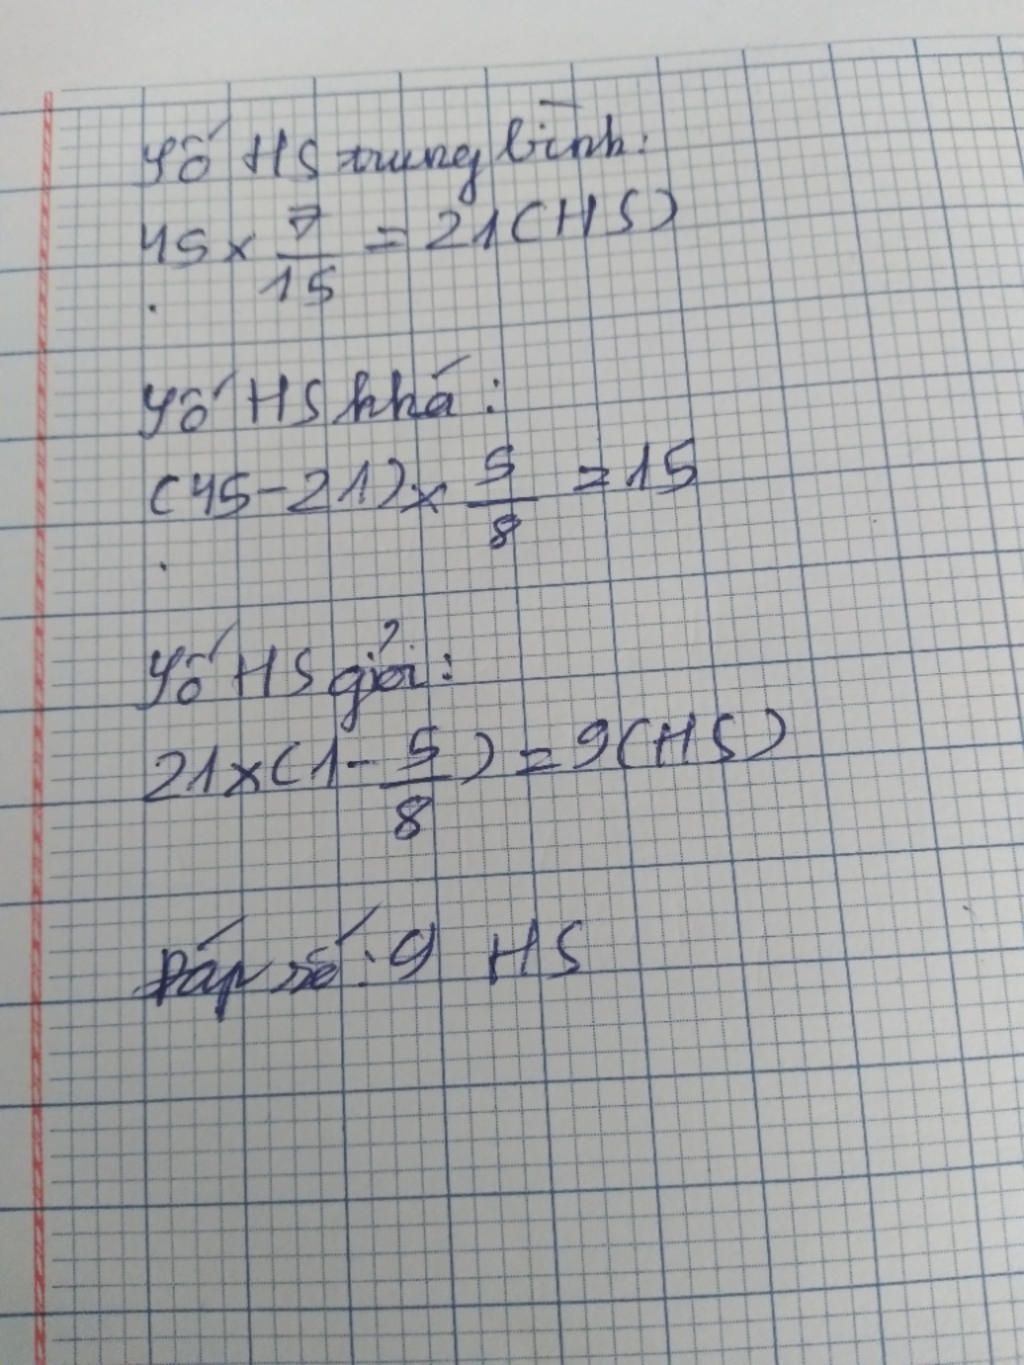 Số HS trung bình:
45 × 7/15 = 21 (HS)
Số HS khá:
(45 - 21) × 5/8 = 15
Số HS giỏi:
21 × (1 - 5/8) = 9 (HS)
Đáp số: 9 HS